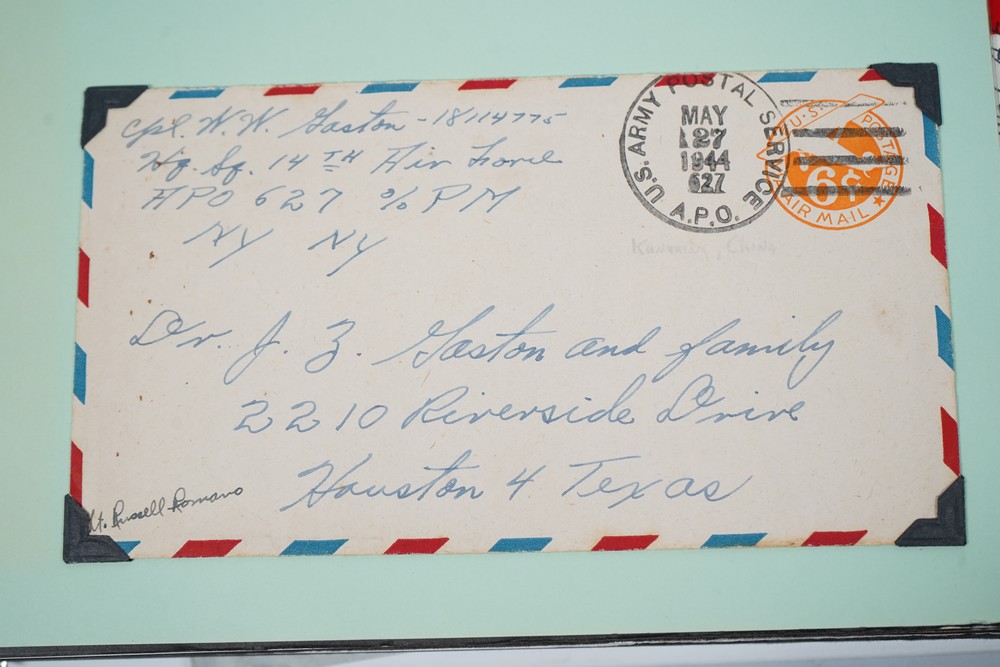 Cpl. W. W. Gaston - 18114775
Hq. Sq. 14TH Air Force
APO 627 % PM
NY NY
U.S. ARMY POSTAL SERVICE
MAY
27
1944
627
A.P.O.
U.S. POSTAGE
6¢
AIR MAIL
China
Dr. J. Z. Gaston and family
2210 Riverside Drive
Houston 4 Texas
Lt. Russell Romano